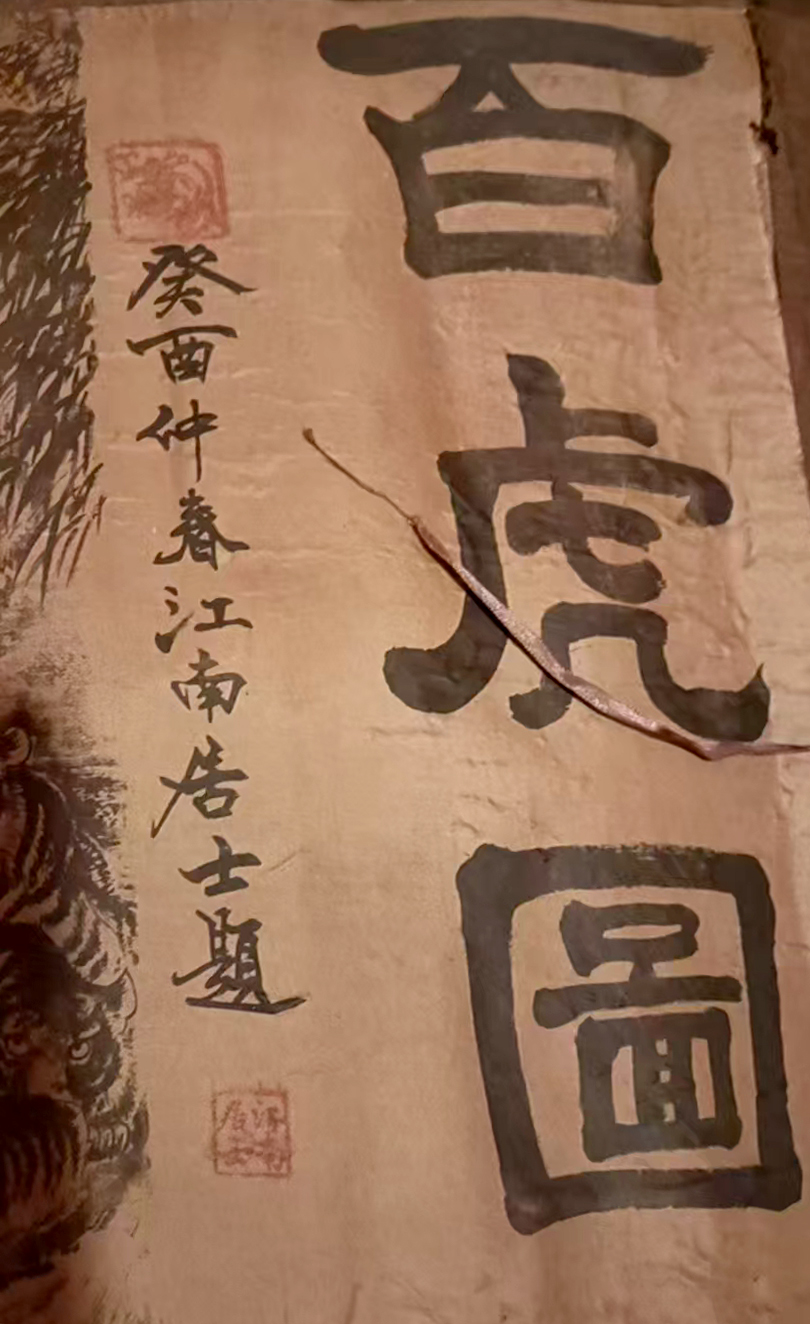 百虎圖
癸酉仲春江南居士題
江南居士